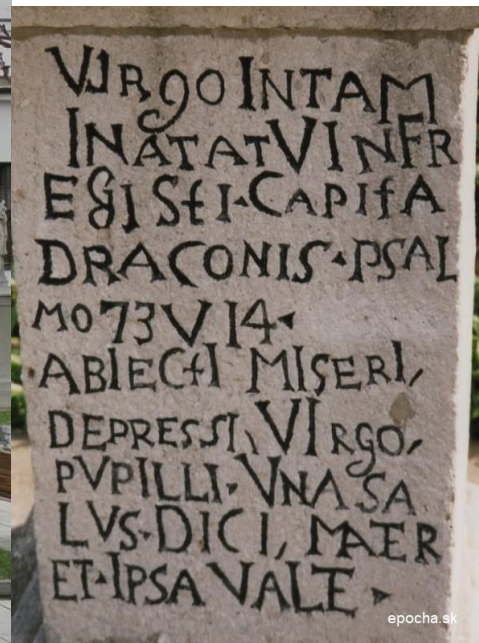 VIRgO INTAM
INATA TU INFR
EGISTI·CAPITA
DRACONIS·PSAL
MO 73 V 14·
ABIECTI MISERI,
DEPRESSI, VIRgO,
PVPILLI·VNA SA
LVS·DICI, MATER
ET·IPSA VALE·
epocha.sk